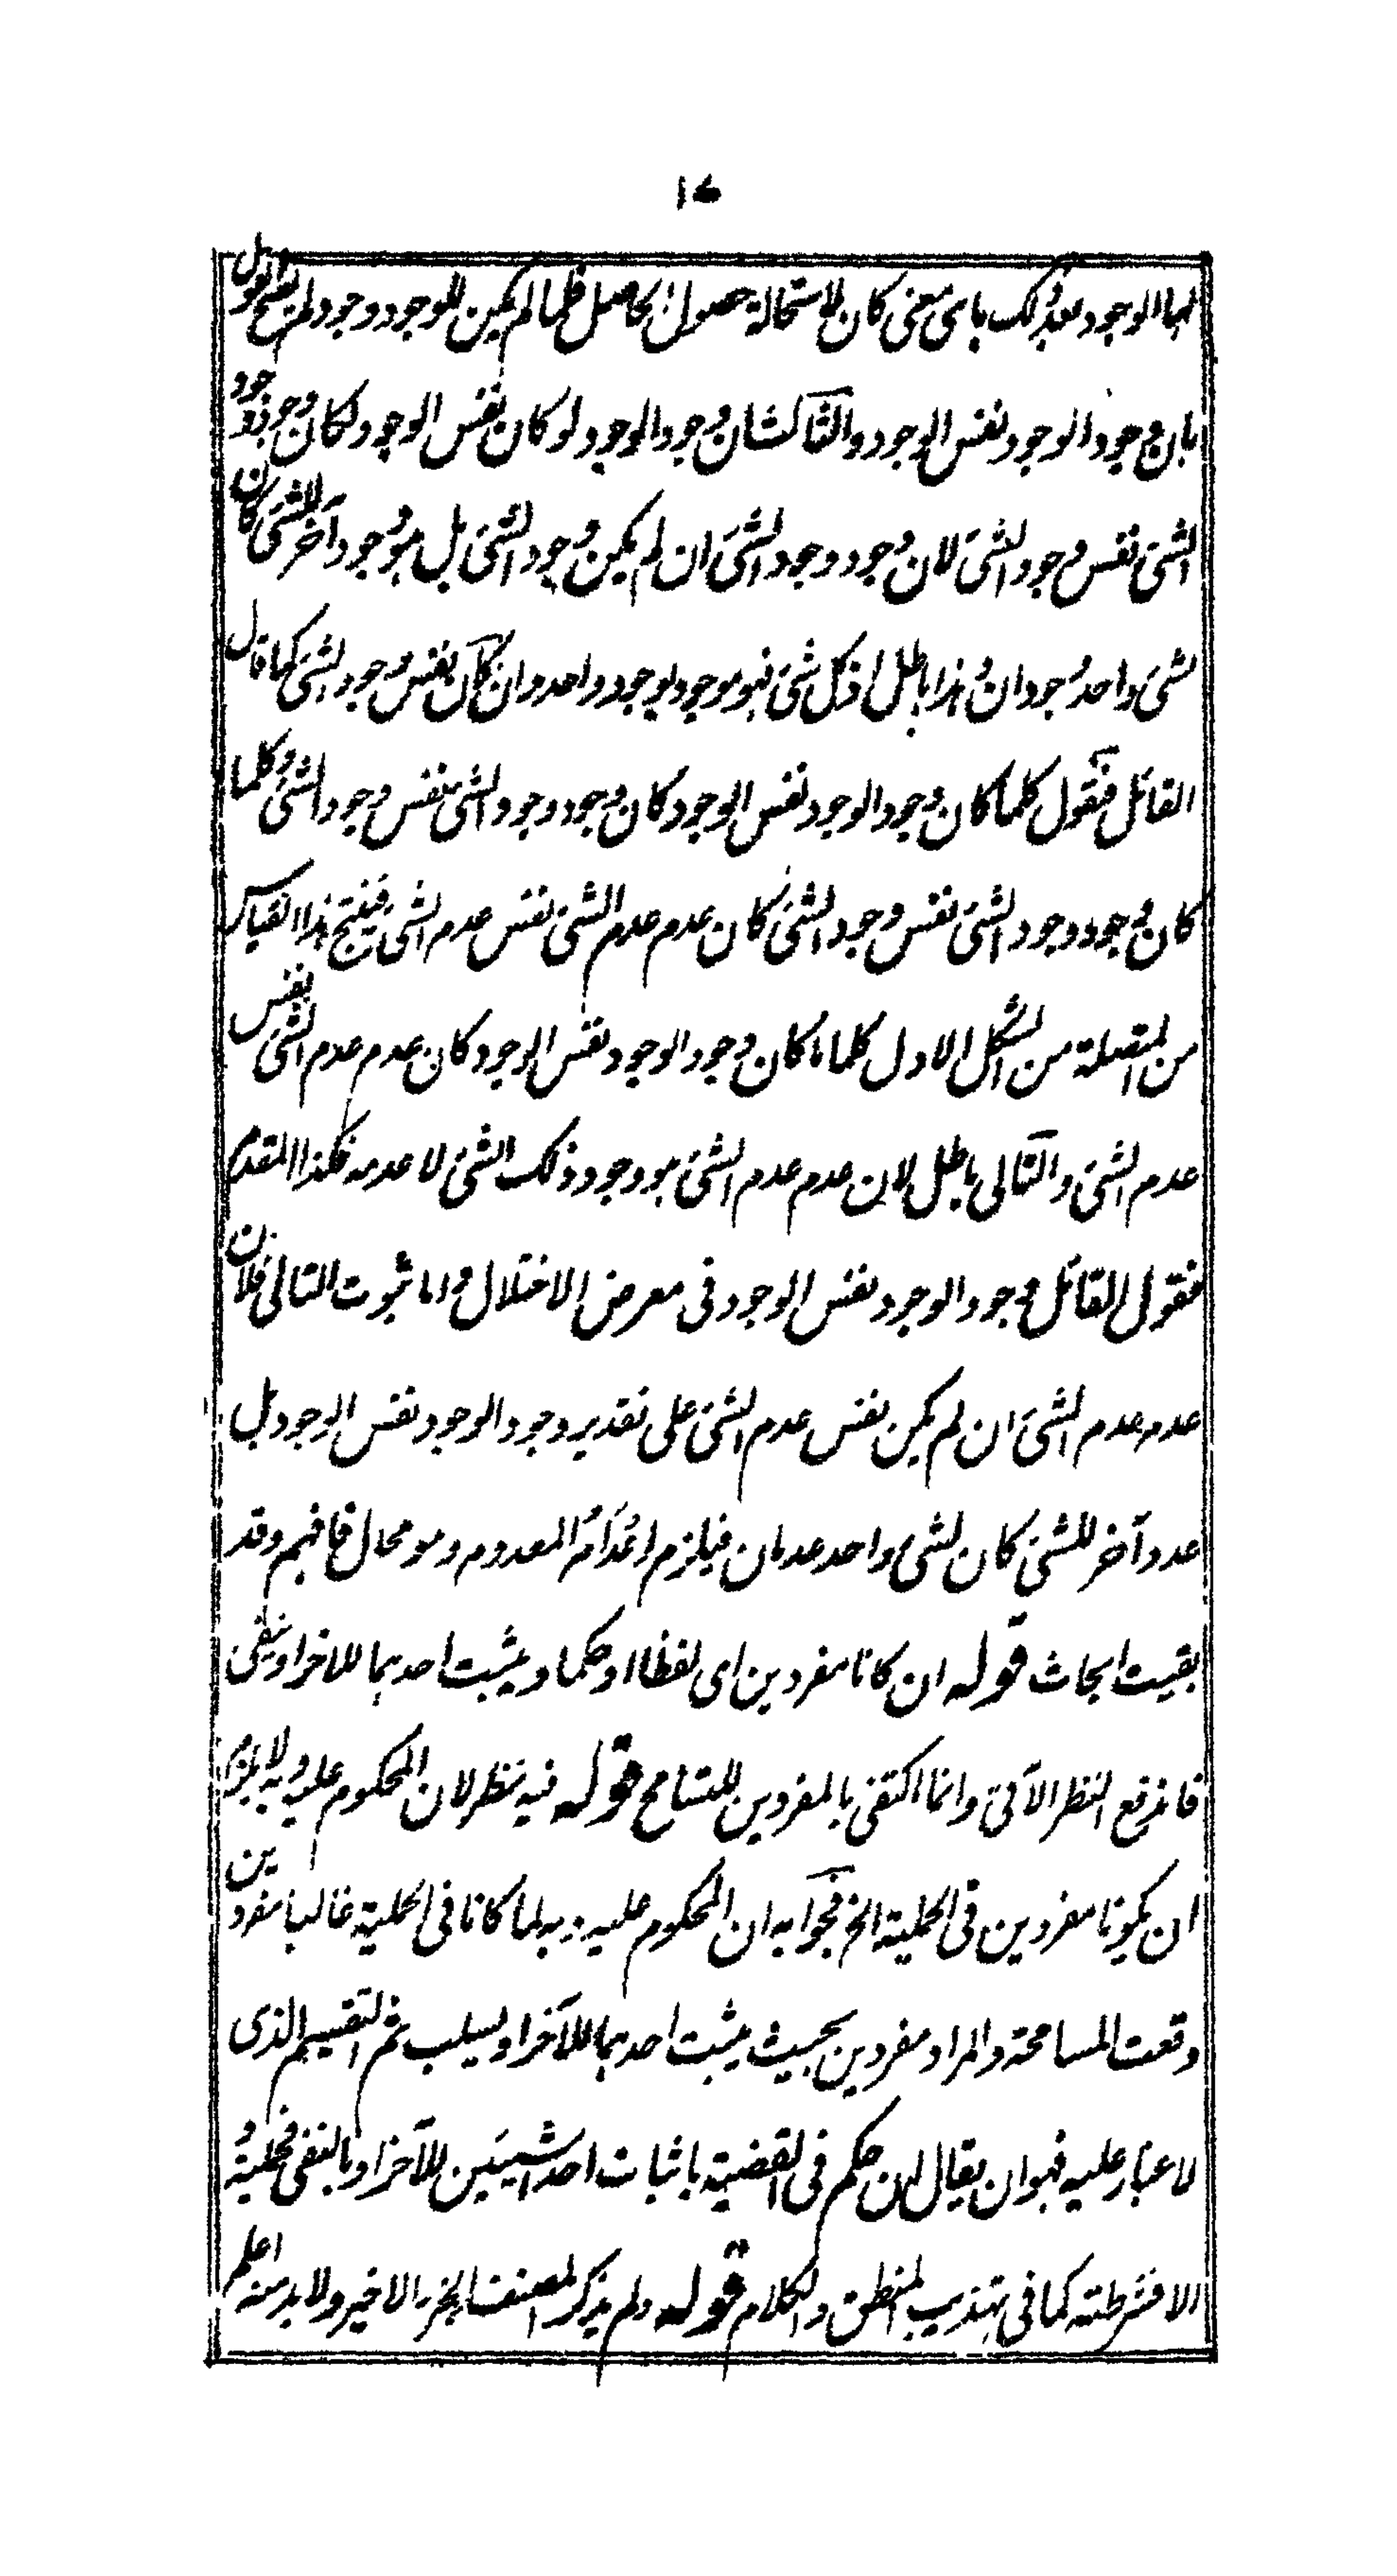 ١٧
لها الوجود بعد ذلك باى معنى كان لاستحالة حصول الحاصل فلما لم يكن للوجود وجود لم يصح القول
بان وجود الوجود نفس الوجود والثالث ان وجود الوجود لو كان نفس الوجود لكان وجود وجود
الشئ نفس وجود الشئ لان وجود وجود الشئ ان لم يكن وجود الشئ بل هو وجود آخر للشئ كان
لشئ واحد وجودان وهذا باطل اذ كل شئ فهو موجود بوجود واحد وان كان نفس وجود الشئ كما قال
القائل فنقول كلما كان وجود الوجود نفس الوجود كان وجود وجود الشئ نفس وجود الشئ وكلما
كان وجود وجود الشئ نفس وجود الشئ كان عدم عدم الشئ نفس عدم الشئ فينتج هذا القياس
من المتصلة من الشكل الاول كلما كان وجود الوجود نفس الوجود كان عدم عدم الشئ نفس
عدم الشئ والتالى باطل لان عدم عدم الشئ هو وجود ذلك الشئ لا عدمه فكذا المقدم
فقول القائل وجود الوجود نفس الوجود فى معرض الاختلال واما ثبوت التالى فلان
عدم عدم الشئ ان لم يكن نفس عدم الشئ على تقدير وجود الوجود نفس الوجود بل
آخر للشئ كان لشئ واحد عدمان فيلزم اعدام المعدوم وهو محال فافهم وقد
بقيت ابحاث قوله ان كانا مفردين اى لفظا او حكما ويثبت احدهما للآخر او ينفى
فاندفع النظر الآتى وانما اكتفى بالمفردين للتسامح قوله فيه نظر لان المحكوم عليه وبه لا يلزم
ان يكونا مفردين فى الحملية الخ فجوابه ان المحكوم عليه وبه لما كانا فى الحملية غالبا مفردين
وقعت المسامحة والمراد مفردين بحيث يثبت احدهما للآخر او يسلب ثم التقسيم الذى
لا غبار عليه فهو ان يقال ان حكم فى القضية باثبات احد الشيئين للآخر او بالنفى فحملية و
الا فشرطية كما فى تهذيب المنطق والكلام قوله ولم يذكر المصنف الجزء الاخير ولا بد منه اعلم